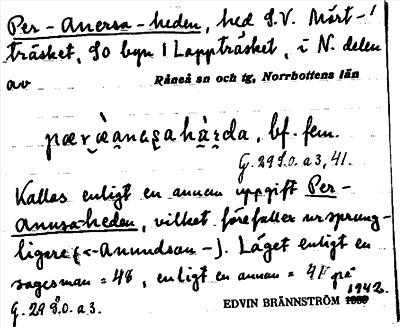 Per-Anersa-heden, hed S.V. Mört-
träsket, SO byn 1 Lappträsket, i N. delen
av Råneå sn och tg, Norrbottens län
bf. fem.
G. 29 S.o. a 3, 41.
Kallas enligt en annan uppgift Per-
Anusa-heden, vilket förefaller ursprung-
ligare (<-Anundson-). Läget enligt en
sagesman = 48, enligt en annan = 41 på
G. 29 S.o. a 3. EDVIN BRÄNNSTRÖM 1942.